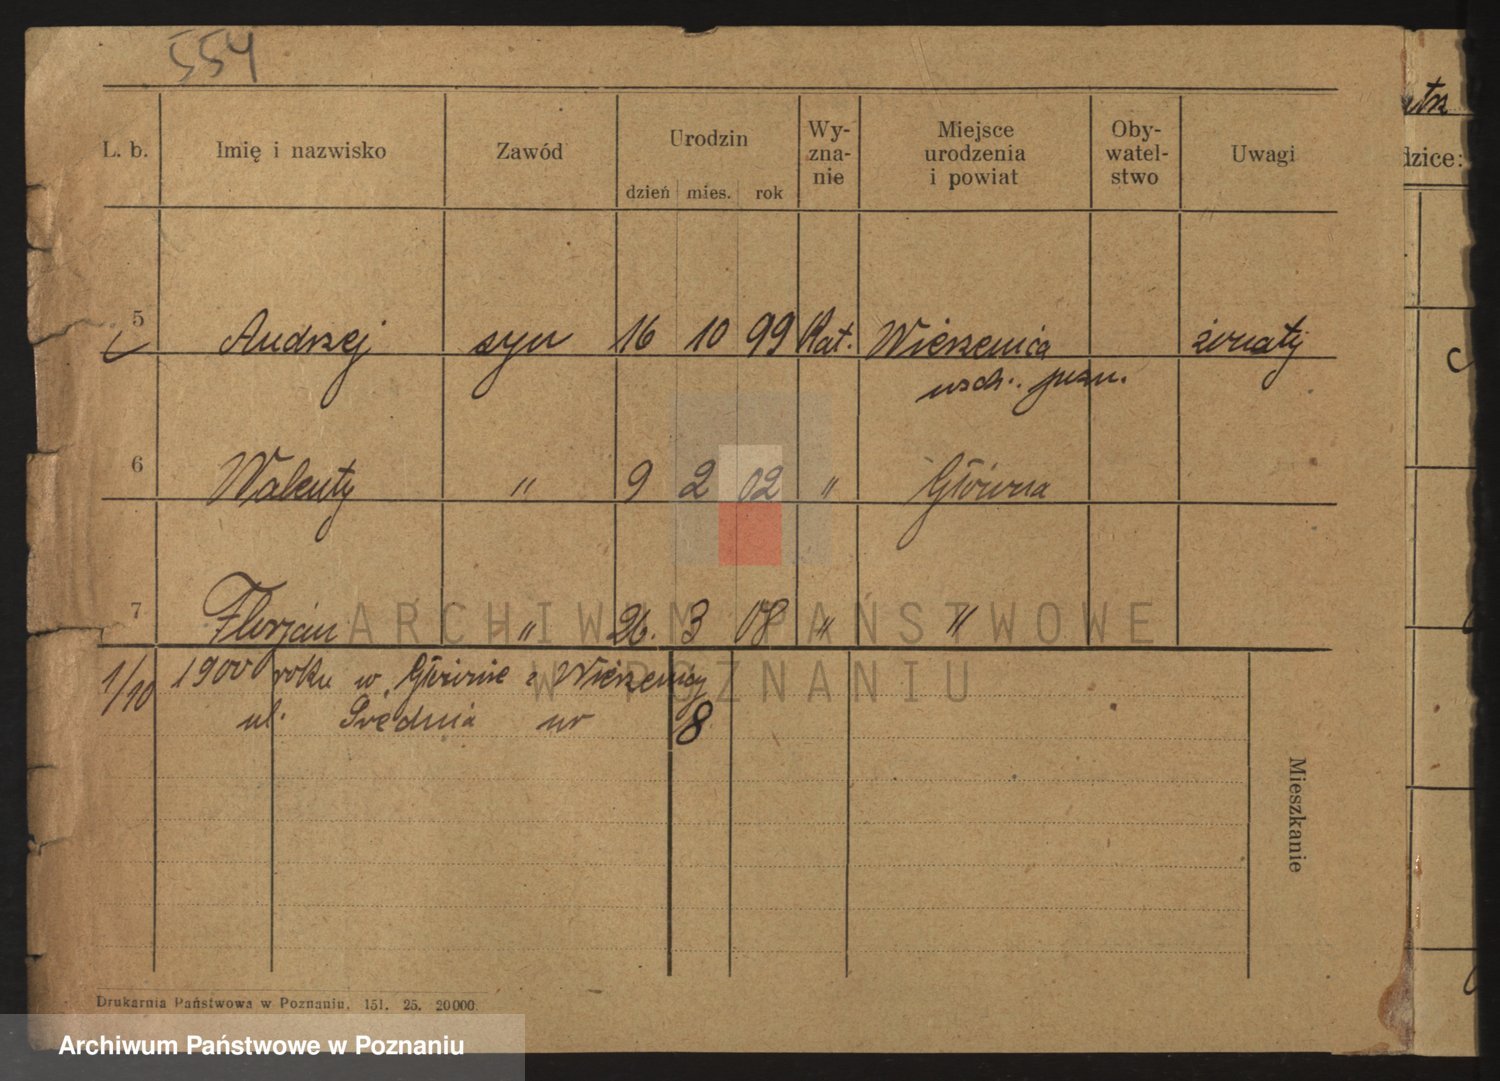 554
L. b. Imię i nazwisko Zawód Urodzin dzień mies. rok Wy-zna-nie Miejsce urodzenia i powiat Oby-watel-stwo Uwagi
5 Andrzej syn 16 10 99 Kat. Wierzenica żonaty
wsch. pozn.
6 Walenty " 9 2 02 " Główna
7 Florjan " 26. 3 08 " "
1/10 1900 roku w Głównie z Wierzenicy
ul. Średnia nr 8
Mieszkanie
Drukarnia Państwowa w Poznaniu. 151. 25. 20000.
dzice:
ARCHIWUM PAŃSTWOWE
W POZNANIU
Archiwum Państwowe w Poznaniu